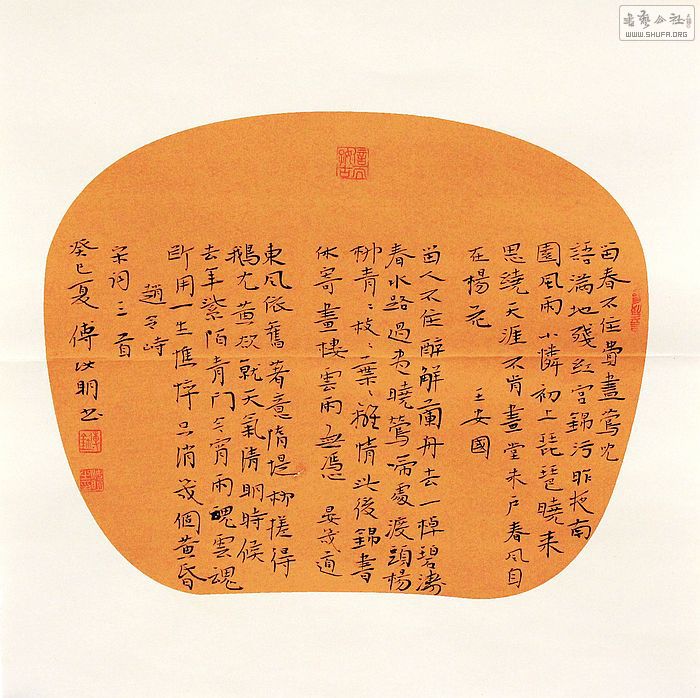 留春不住費盡鶯兒
語滿地殘紅宮錦污昨夜南
園風雨小憐初上琵琶曉來
思繞天涯不肯畫堂朱戶春風自
在楊花 王安國
留人不住醉解蘭舟去一棹碧濤
春水路過盡曉鶯啼處渡頭楊
柳青〻枝〻葉〻離情此後錦書
休寄畫樓雲雨無憑 晏幾道
東風依舊著意隋堤柳搓得
鵝兒黃欲就天氣清明時候
去年紫陌青門今宵雨魄雲魂
斷用一生憔悴只消幾個黃昏
趙令畤
宋詞三首
癸巳夏 傅 明書
書藝公社
WWW.SHUFA.ORG